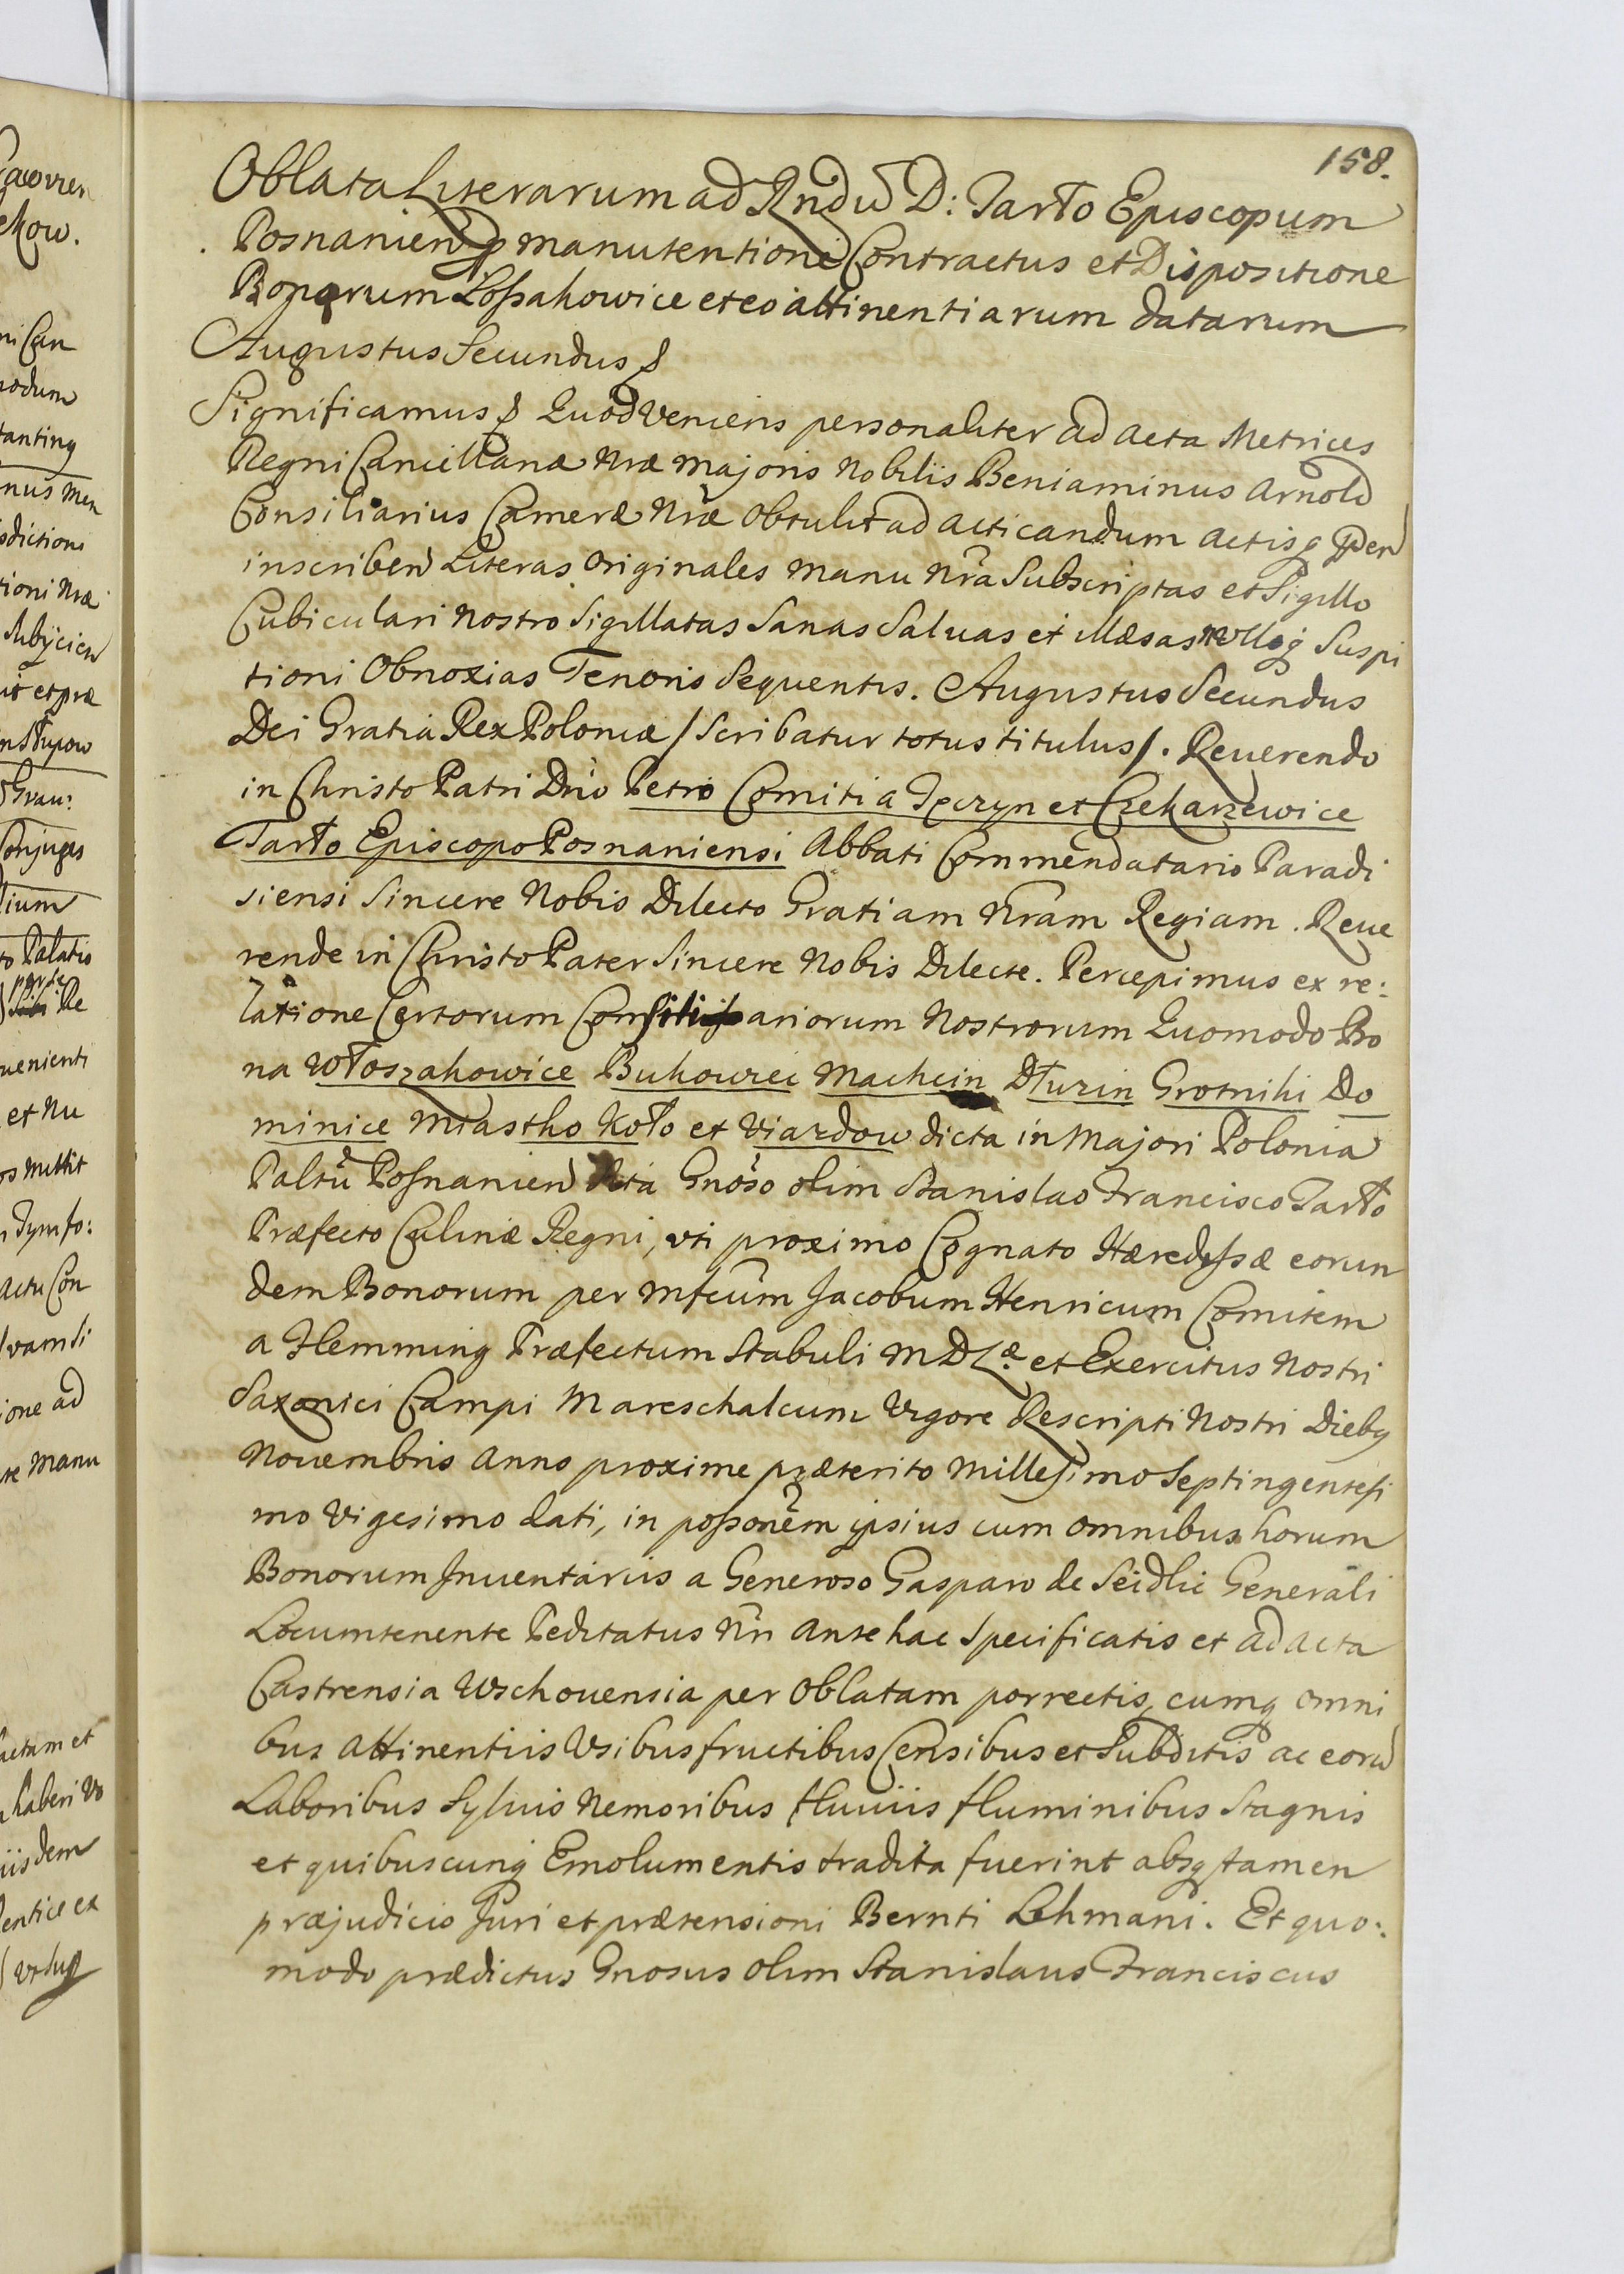 158.
Oblata Literarum ad Rndũ D: Tarło Episcopum
Posnanien p manutentione Contractus et Dispositione
Bonorum Lossakowice et eo attinentiarum datarum
Augustus Secundus
Significamus Quod Veniens personaliter ad acta Metrices
Regni Cancellariæ Nræ majoris Nobilis Beniaminus Arnold
Consiliarius Cameræ Nræ obtulit ad acticandum actisq
inscriben Literas Originales manu Nra Subscriptas et Sigillo
Cubiculari nostro Sigillatas Sanas Saluas et illæsas nulloq Suspi
tioni Obnoxias Tenoris Sequentis. Augustus Secundus
Dei Gratia Rex Poloniæ / Scribatur totus titulus /. Reuerendo
in Christo Patri Dno Petro Comiti a Teczyn et Czekarzewice
Tarło Episcopo Posnaniensi Abbati Commendatario Paradi
siensi Sincere Nobis Dilecto Gratiam Nram Regiam. Reue
rende in Christo Pater Sincere Nobis Dilecte. Percepimus ex re:
latione Certorum Consiliariorum Nostrorum Quomodo Bo
na Włoszakowice Bukowiec Machcin Dłuzin Grotniki Do
minice Miastko Koło et Viazdow dicta in Majori Polonia
Paltũ Posnanien sita Gnoso olim Stanislao Francisco Tarło
Præfecto Culinæ Regni, vti proximo Cognato Hæredessæ eorun
dem Bonorum per Mfcum Jacobum Henricum Comitem
a Flemming Præfectum Stabuli M D L æ et Exercitus Nostri
Saxonici Campi Mareschalcum Vigore Rescripti Nostri Diebq
Nouembris Anno proxime præterito Millesimo Septingentesi
mo Vigesimo dati, in possonem ipsius cum omnibus horum
Bonorum Inuentariis a Generoso Gasparo de Seidlic Generali
Locumtenente Peditatus Nri ante hac Specificatis et ad acta
Castrensia Wschouensia per Oblatam porrectis, cumq omni
bus attinentiis Vsibusfructibus Censibus et Subditis ac eorũ
Laboribus Syluis Nemoribus fluuiis fluminibus Stagnis
et quibuscunq Emolumentis tradita fuerint absq tamen
præjudicio Juri et prætensioni Bernti Lehmani. Et quo:
modo prædictus Gnosus olim Stanislaus Franciscus